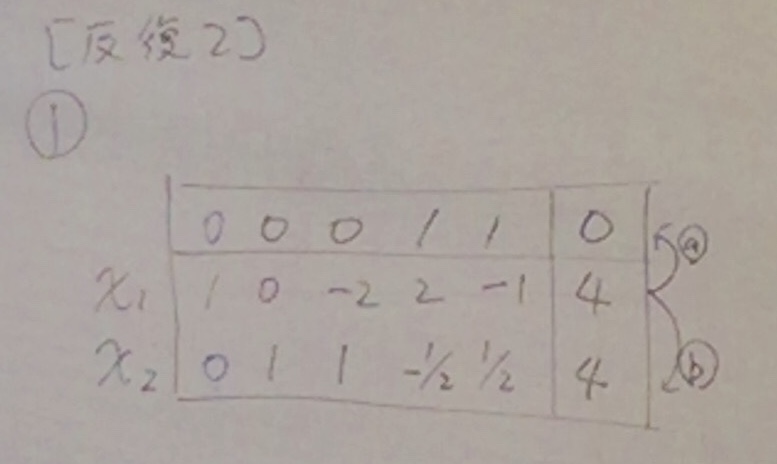 [反復2]
①
0 0 0 1 1 0 ⓐ
x₁ 1 0 -2 2 -1 4
x₂ 0 1 1 -1/2 1/2 4 ⓑ